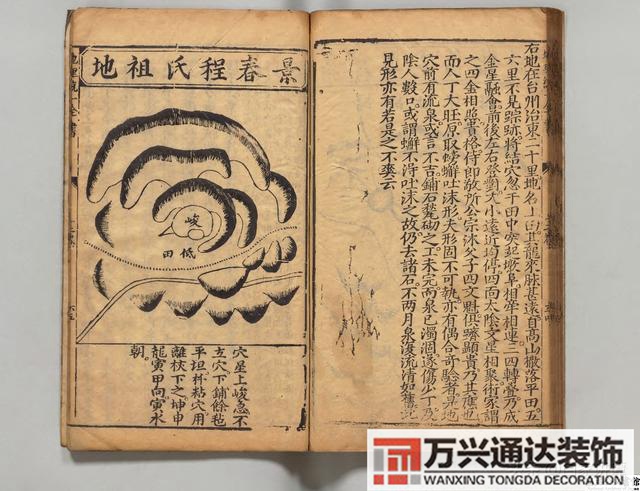 右地在台州治東二十里地名上臼其龍來脉甚遠自高山撒落平田五
六里不見踪跡將結穴忽于田中突起墩阜相牽相連三四轉疊乃成
金星融會前後左右登對大小遠近均停四面太陰文星相聚術家謂
之四金相照貴格侍郎敬所公宗沐父子四文魁俱躋顯貴乃其應也
而人丁大旺原取螃蠏吐沫形夫形固不可執亦有偶合竒驗者是地
穴前有流泉或言不吉鋪石甃砌之工未完而泉已濁涸遂傷少丁乃
除人數口或謂蠏不淂吐沫之故仍去諸石不兩月泉復流清如舊記
見形亦有若是之不爽云
景春程氏祖地
峻
低田
穴星上峻急不
立穴下鋪餘毡
平坦杵粘穴用
離杖下之坤申
龍寅甲向寅水
朝
万兴通达装饰
WANXING TONGDA DECORATION